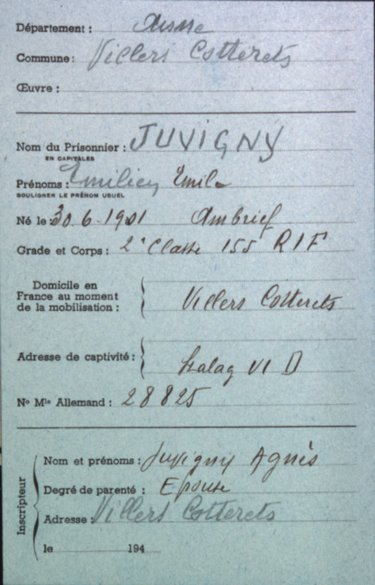 Département : Aisne
Commune : Villers Cotterets
Œuvre :
Nom du Prisonnier : JUVIGNY
EN CAPITALES
Prénoms : Emilien Emile
SOULIGNER LE PRÉNOM USUEL
Né le 30.6.1901 Ambrief
Grade et Corps : 2e Classe 155 R I F
Domicile en
France au moment
de la mobilisation :
Villers Cotterets
Adresse de captivité : Stalag VI D
No Mle Allemand : 28825
Inscripteur
Nom et prénoms : Juvigny Agnès
Degré de parenté : Epouse
Adresse Villers Cotterets
le 194